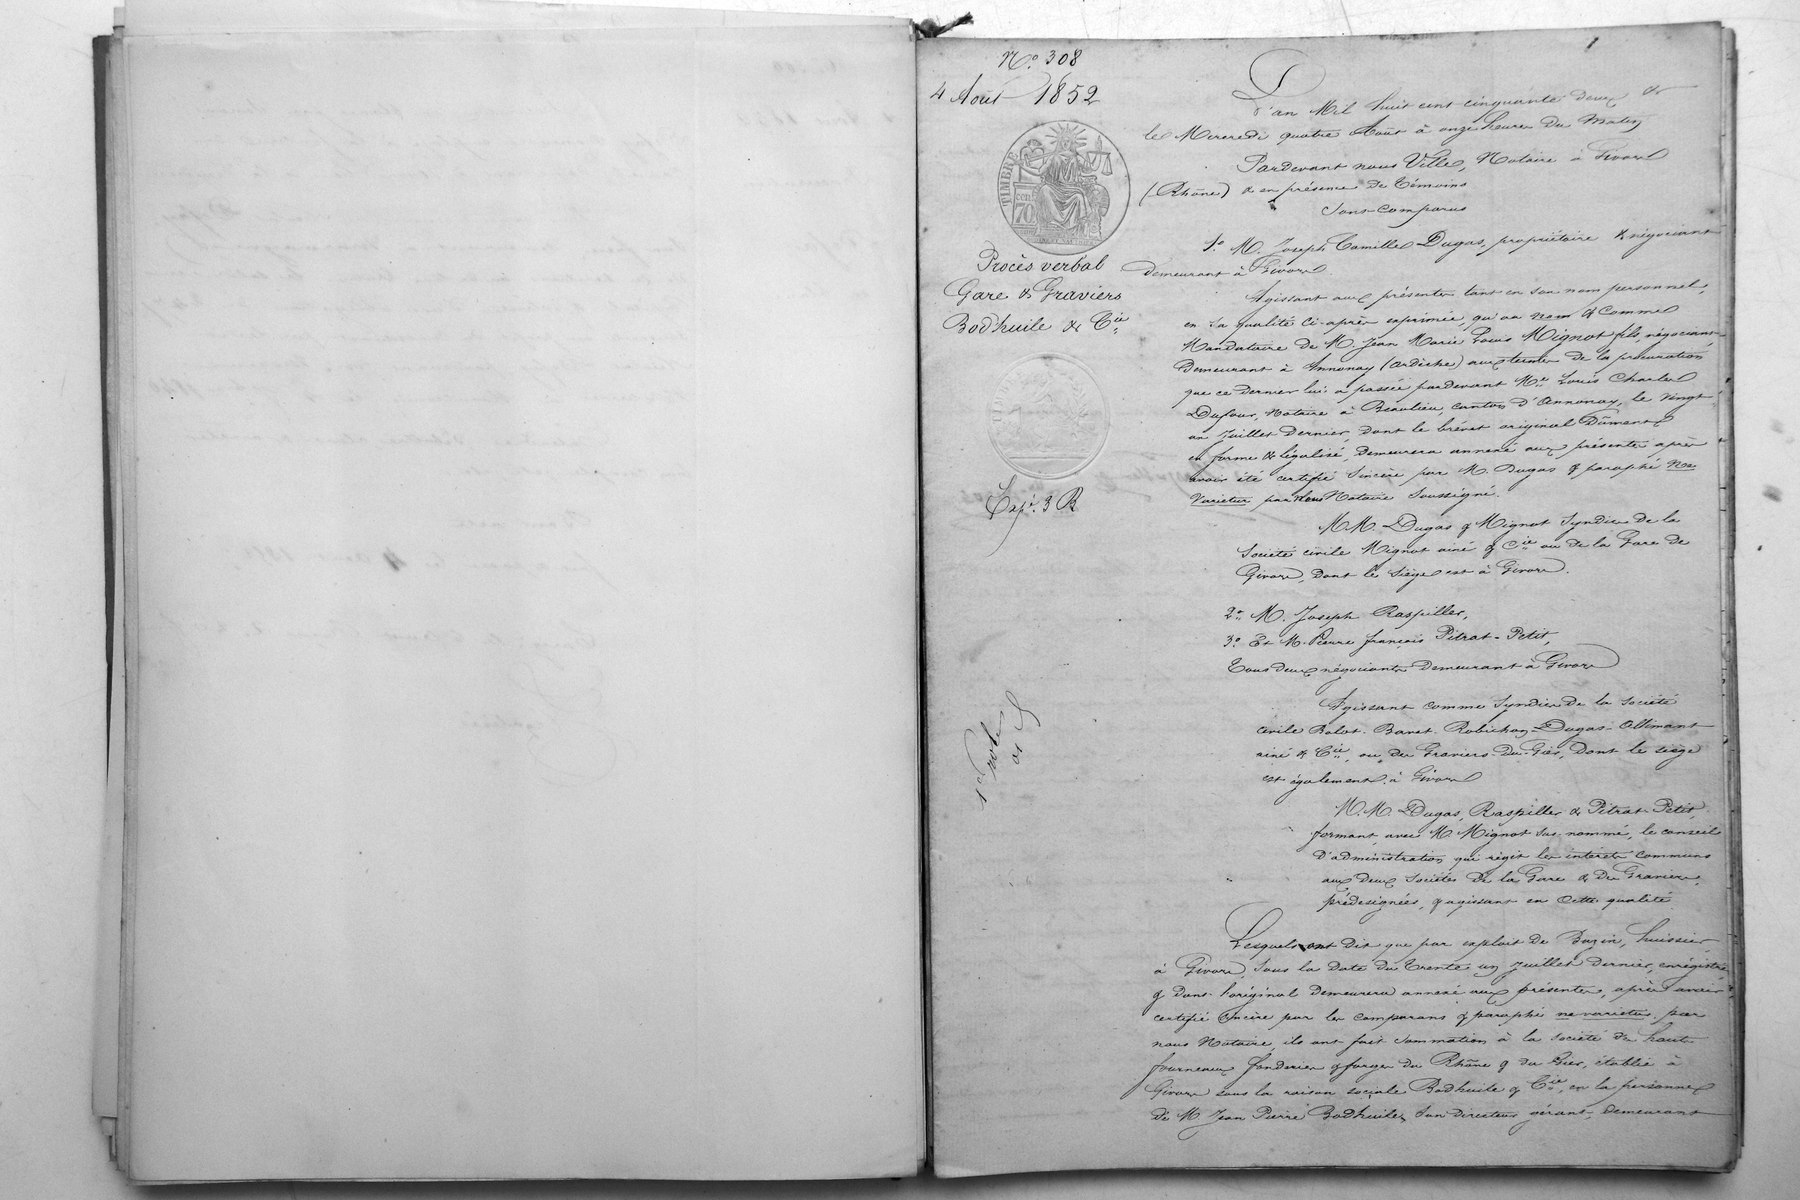 N.º 308
4 Août 1852
TIMBRE
70
Procès verbal
Gare & Graviers
Bodhuile & Cie
Expé. 3 R
1er rôle
1
L'an Mil huit cent cinquante deux et
le Mercredi quatre Août à onze heures du Matin
Pardevant nous Ville, Notaire à Givors
(Rhône) & en présence de témoins
Sont comparus
1.º M. Joseph Camille Dugas, propriétaire & négociant
demeurant à Givors.
Agissant aux présentes tant en son nom personnel,
en sa qualité ci-après exprimée, qu'au nom & comme
Mandataire de M. Jean Marie Louis Mignot fils, négociant,
demeurant à Annonay (ardèche) aux termes de la procuration
que ce dernier lui a passée pardevant Me Louis Charles
Dufour, Notaire à Beaulieu, canton d'Annonay, le vingt
un Juillet dernier, dont le brévet original Dûment
en forme & légalisé, demeurera annexé aux présentes après
avoir été certifié Sincère par M. Dugas & paraphé Ne
Varietur par Nous Notaire Soussigné.
M.M. Dugas & Mignot Syndics de la
Société civile Mignot ainé & Cie ou de la Gare de
Givors, dont le Siège est à Givors.
2.º M. Joseph Raspiller,
3.º Et M. Pierre françois Pitrat-Petit,
Tous deux négociants demeurant à Givors
Agissant comme Syndics de la Société
civile Bolot-Baret-Robichon-Dugas-Ollimant
ainé & Cie, ou des Graviers-du-Gier, dont le siège
est également à Givors
M.M. Dugas, Raspiller & Pitrat-Petit,
formant, avec M. Mignot sus-nommé, le conseil
d'administration qui régit les intérêts communs
aux deux Sociétés de la Gare & des Graviers,
prédésignées, & agissant en cette qualité
Lesquels ont dit que par exploit de Bazin, huissier
à Givors, sous la date du trente un Juillet dernier, enrégistré
& dont l'original demeurera annexé aux présentes, après avoir
certifié sincère par les comparans & paraphé ne varietur par
nous Notaire, ils ont fait sommation à la société des hauts
fourneaux fonderies & forges du Rhône & du Gier, établie à
Givors sous la raison sociale Bodhuile & Cie, en la personne
de M. Jean Pierre Bodhuile, son directeur gérant, demeurant